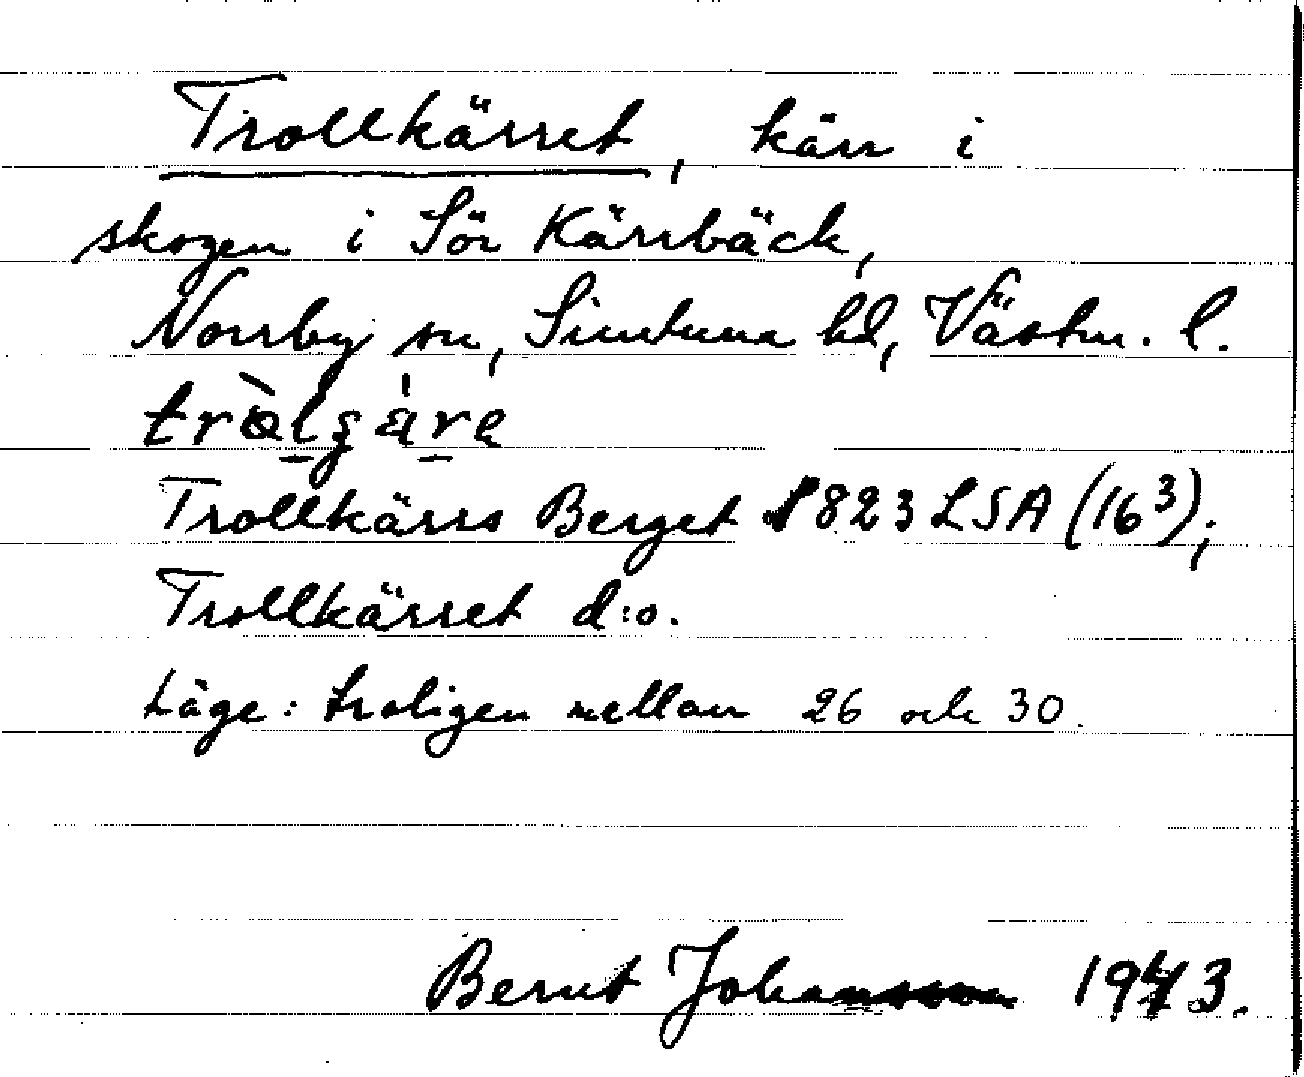 Trollkärret, kärr i
skogen i Sör Kärrbäck,
Norrby sn, Simtuna hd, Västm. l.
Trollkärrs Berget 1823 LSA (16³);
Trollkärret d:o.
Läge: troligen mellan 26 och 30.
Bernt Johansson 1943.